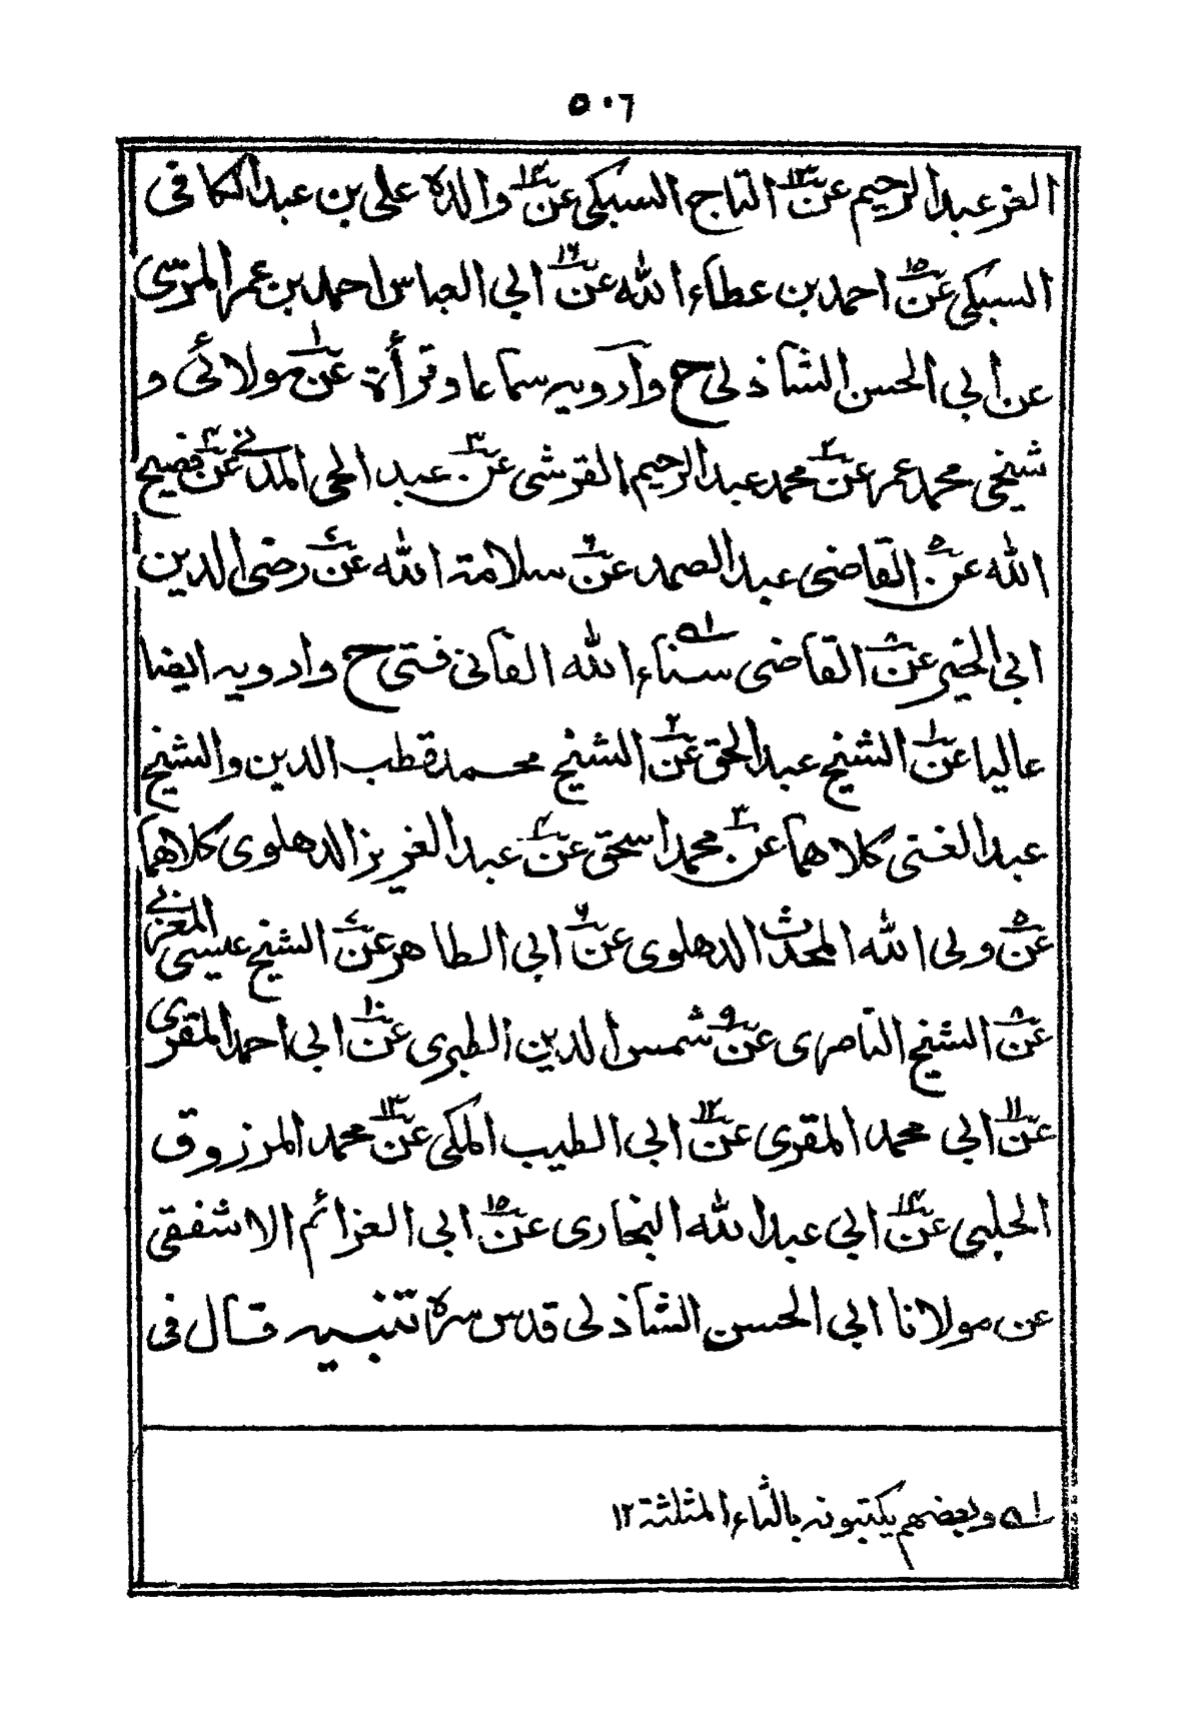 ٥٠٦
العز عبد الرحيم عن١٣ التاج السبكي عن١٤ والده علي بن عبد الكافي
السبكي عن١٥ احمد بن عطاء الله عن١٦ ابي العباس احمد بن عمر المرسّى
عن ابي الحسن الشاذلى ح وآرويه سماعا وقرأة عن١ مولائى و
شيخى محمد عمر عن٢ محمد عبد الرحيم القرشى عن٣ عبد الحى المدنى عن٤ فصيح
الله عن٥ القاضى عبد الصمد عن٦ سلامة الله عن٧ رضى الدين
ابى الخير عن٨ القاضى سناء الله الفانى فتى ح وارويه ايضا
عاليا عن١ الشيخ عبد الحق عن٢ الشيخ محمد قطب الدين والشيخ
عبد الغنى كلاهما عن٣ محمد اسحق عن٤ عبد العزيز الدهلوى كلاهما
عن٥ ولى الله المحدث الدهلوى عن٦ ابى الطاهر عن٧ الشيخ عيسى المغربى
عن٨ الشيخ الناصرى عن٩ شمس الدين الطبرى عن١٠ ابى احمد المقرى
عن١١ ابى محمد المقرى عن١٢ ابى الطيب المكى عن١٣ محمد المرزوق
الحلبى عن١٤ ابي عبد الله البخارى عن١٥ ابى العزائم الاشفقى
عن مولانا ابي الحسن الشاذلى قدس سره تنبيه قال فى
اه وبعضهم يكتبونه بالثاء المثلثة ١٢